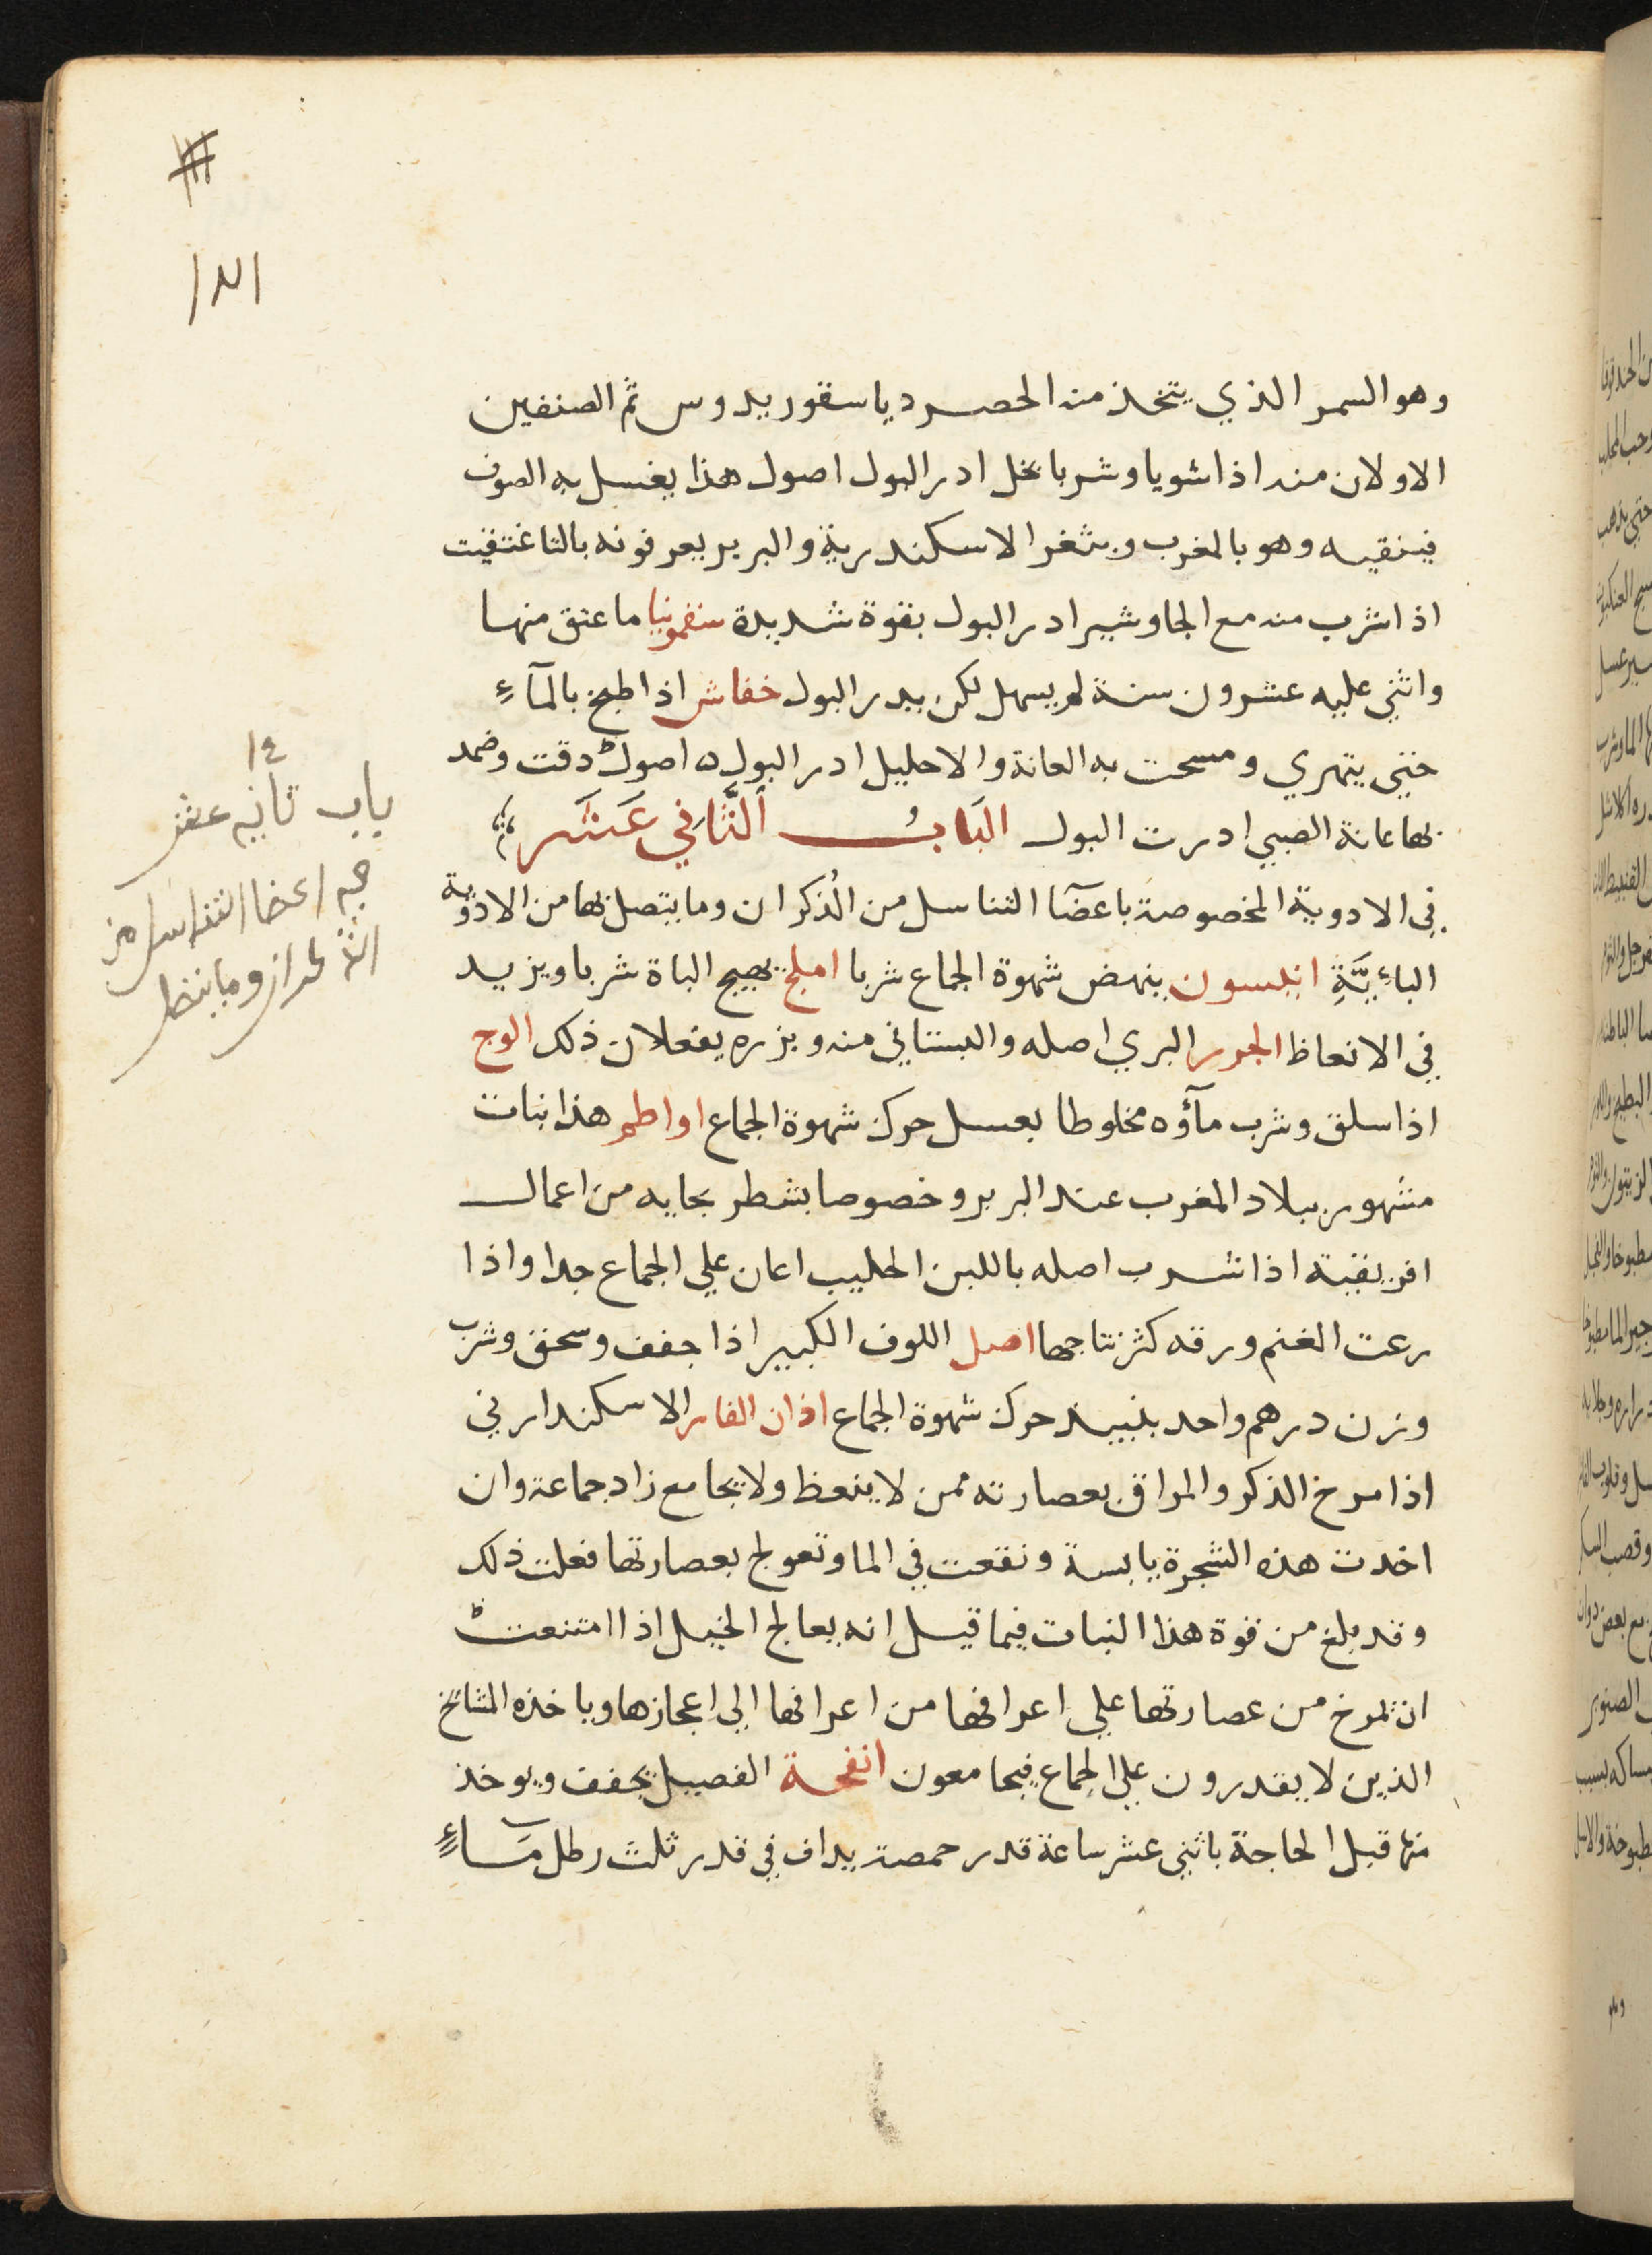 وهو السمر الذي يتخذ منه الحصر دياسقوريدوس ثم الصنفين
الاولان منه اذا شويا وشربا بخل ادر البول اصول هذا يغسل به الصوف
فينقيه وهو بالمغرب وبثغر الاسكندرية والبربر يعرفونه بالتاغنتفيت
اذا شرب منه مع الجاوشير ادر البول بقوة شديدة سقمونيا ما عتق منها
واتي عليه عشرون سنة لم يسهل لكن يدر البول خفاش اذا طبخ بالمآء
حتي يتهري ومسحت به العانة والاحليل ادر البول اصول دقت وضمد
بها عانة الصبي ادرت البول البَابُ الثَّانِي عَشَر
في الادوية المخصوصة باعضآ التناسل من الذكران وما يتصل بها من الادوية
البائيَّةِ انيسون ينهض شهوة الجماع شربا املج يهيج الباة شربا ويزيد
في الانعاظ الجزر البري اصله والبستاني منه وبزره يفعلان ذلك الوج
اذا سلق وشرب مآؤه مخلوطا بعسل حرك شهوة الجماع اواطم هذا نبات
مشهور ببلاد المغرب عند البربر وخصوصا بشطر بجايه من اعمال
افريقية اذا شرب اصله باللبن الحليب اعان علي الجماع جدا واذا
رعت الغنم ورقه كثر نتاجها اصل اللوف الكبير اذا جفف وسحق وشرب
وزن درهم واحد بنبيذ حرك شهوة الجماع اذان الفار الاسكندراني
اذا مرخ الذكر والمراق بعصارته ممن لا ينعظ ولا يجامع زاد جماعة وان
اخدت هذه الشجرة يابسة ونقعت في الما وتعولج بعصارتها فعلت ذلك
وقد بلغ من قوة هذا النبات فيما قيل انه يعالج الخيل اذا امتنعت
ان تمرخ من عصارتها علي اعرافها من اعرافها الي اعجازها وياخذه المشائخ
الذين لا يقدرون علي الجماع فيجامعون انفحة الفصيل يجفف ويوخذ
منها قبل الحاجة باثني عشر ساعة قدر حمصة يداف في قدر ثلث رطل مَاءٍ
١٤
باب ثانيه عشر
اعضا التناسل من
الذكران وما يتصل